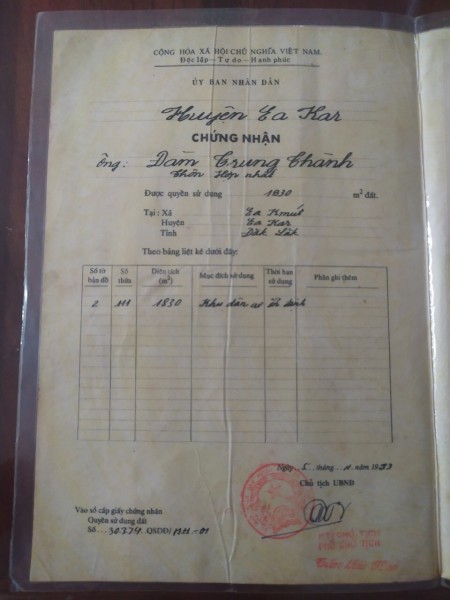 CỘNG HÒA XÃ HỘI CHỦ NGHĨA VIỆT NAM.
Độc lập - Tự do - Hạnh phúc
ỦY BAN NHÂN DÂN
Huyện Ea Kar
CHỨNG NHẬN
Ông: Đàm Trung Thành
Thôn Hợp nhất
Được quyền sử dụng 1830 m² đất.
Tại: Xã Ea Kmút
Huyện Ea Kar
Tỉnh Đăk Lăk
Theo bảng liệt kê dưới đây:
Số tờ bản đồ Số thửa Diện tích (m²) Mục đích sử dụng Thời hạn sử dụng Phần ghi thêm
2 111 1830 Khu dân cư ổn định
Ngày 5 tháng 11 năm 1993
Chủ tịch UBND
Vào sổ cấp giấy chứng nhận
Quyền sử dụng đất
Số QSDĐ/
PHÓ CHỦ TỊCH